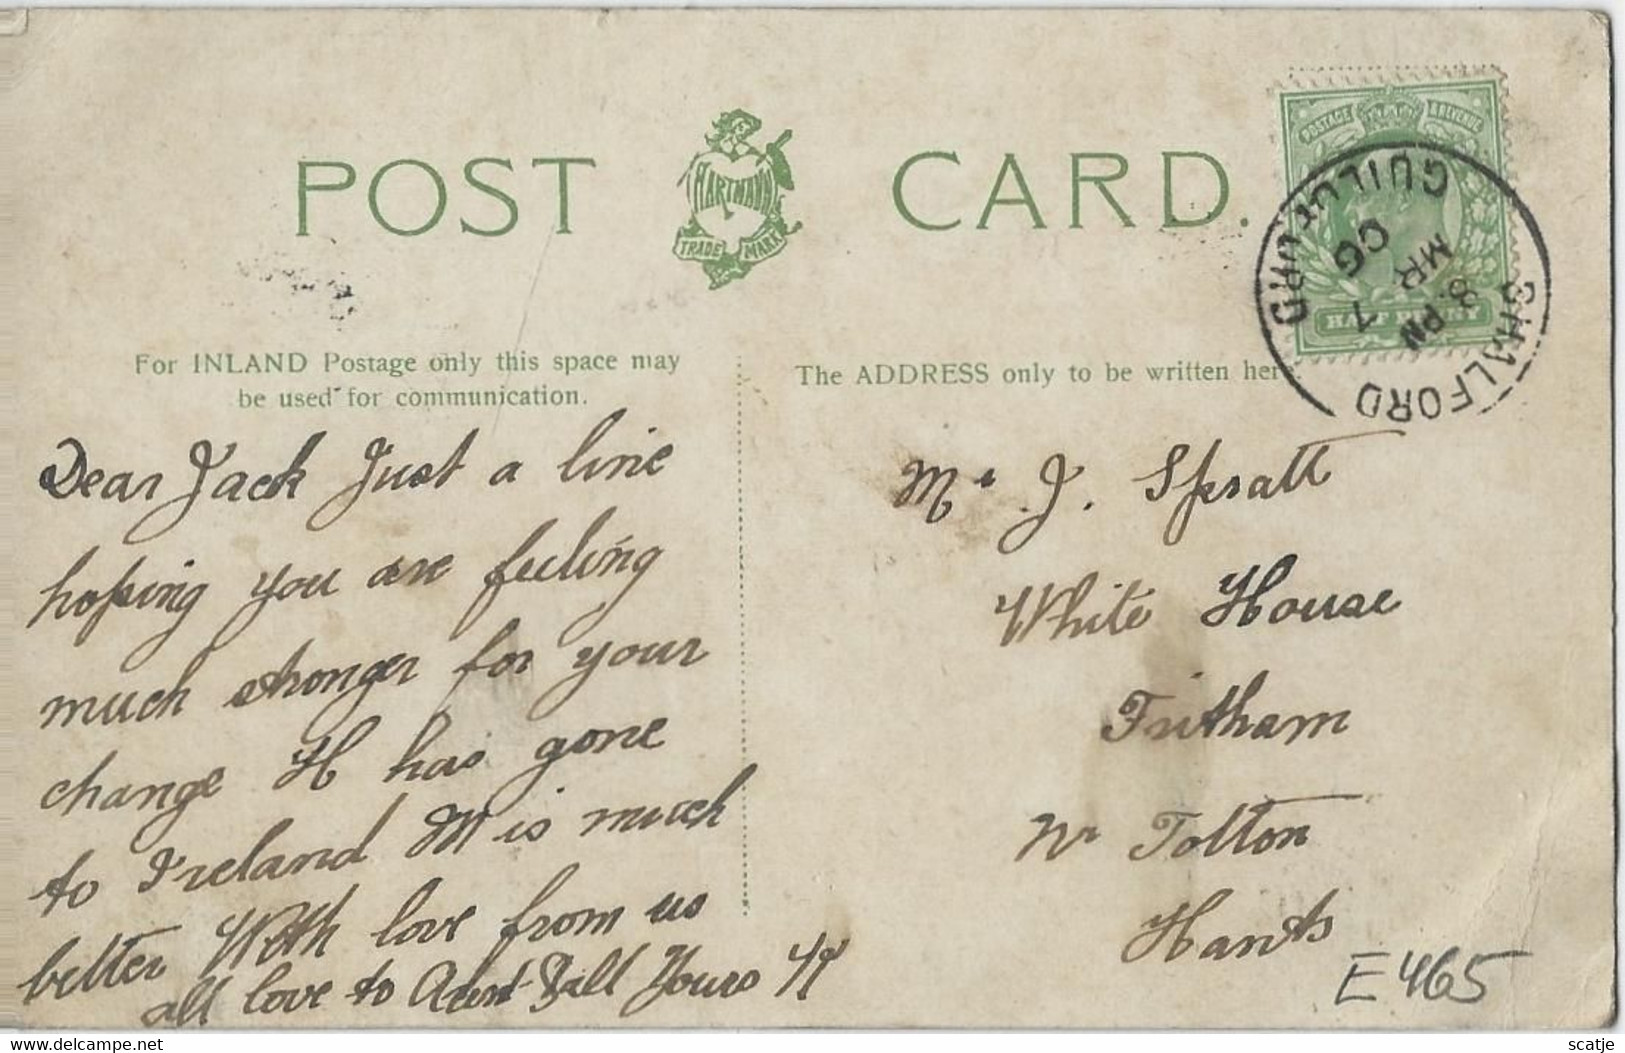 POST CARD.
HARTMANN
TRADE MARK
POSTAGE & REVENUE
HALF PENNY
SHALFORD GUILDFORD
8. PM
MR 7
06
For INLAND Postage only this space may
be used for communication.
The ADDRESS only to be written here
Dear Jack Just a line
hoping you are feeling
much stronger for your
change H has gone
to Ireland M is much
better With love from us
all love to Aunt Yours
Mr J. Spratt
White House
Fritham
Nr Totton
Hants
E465
www.delcampe.net
scatje